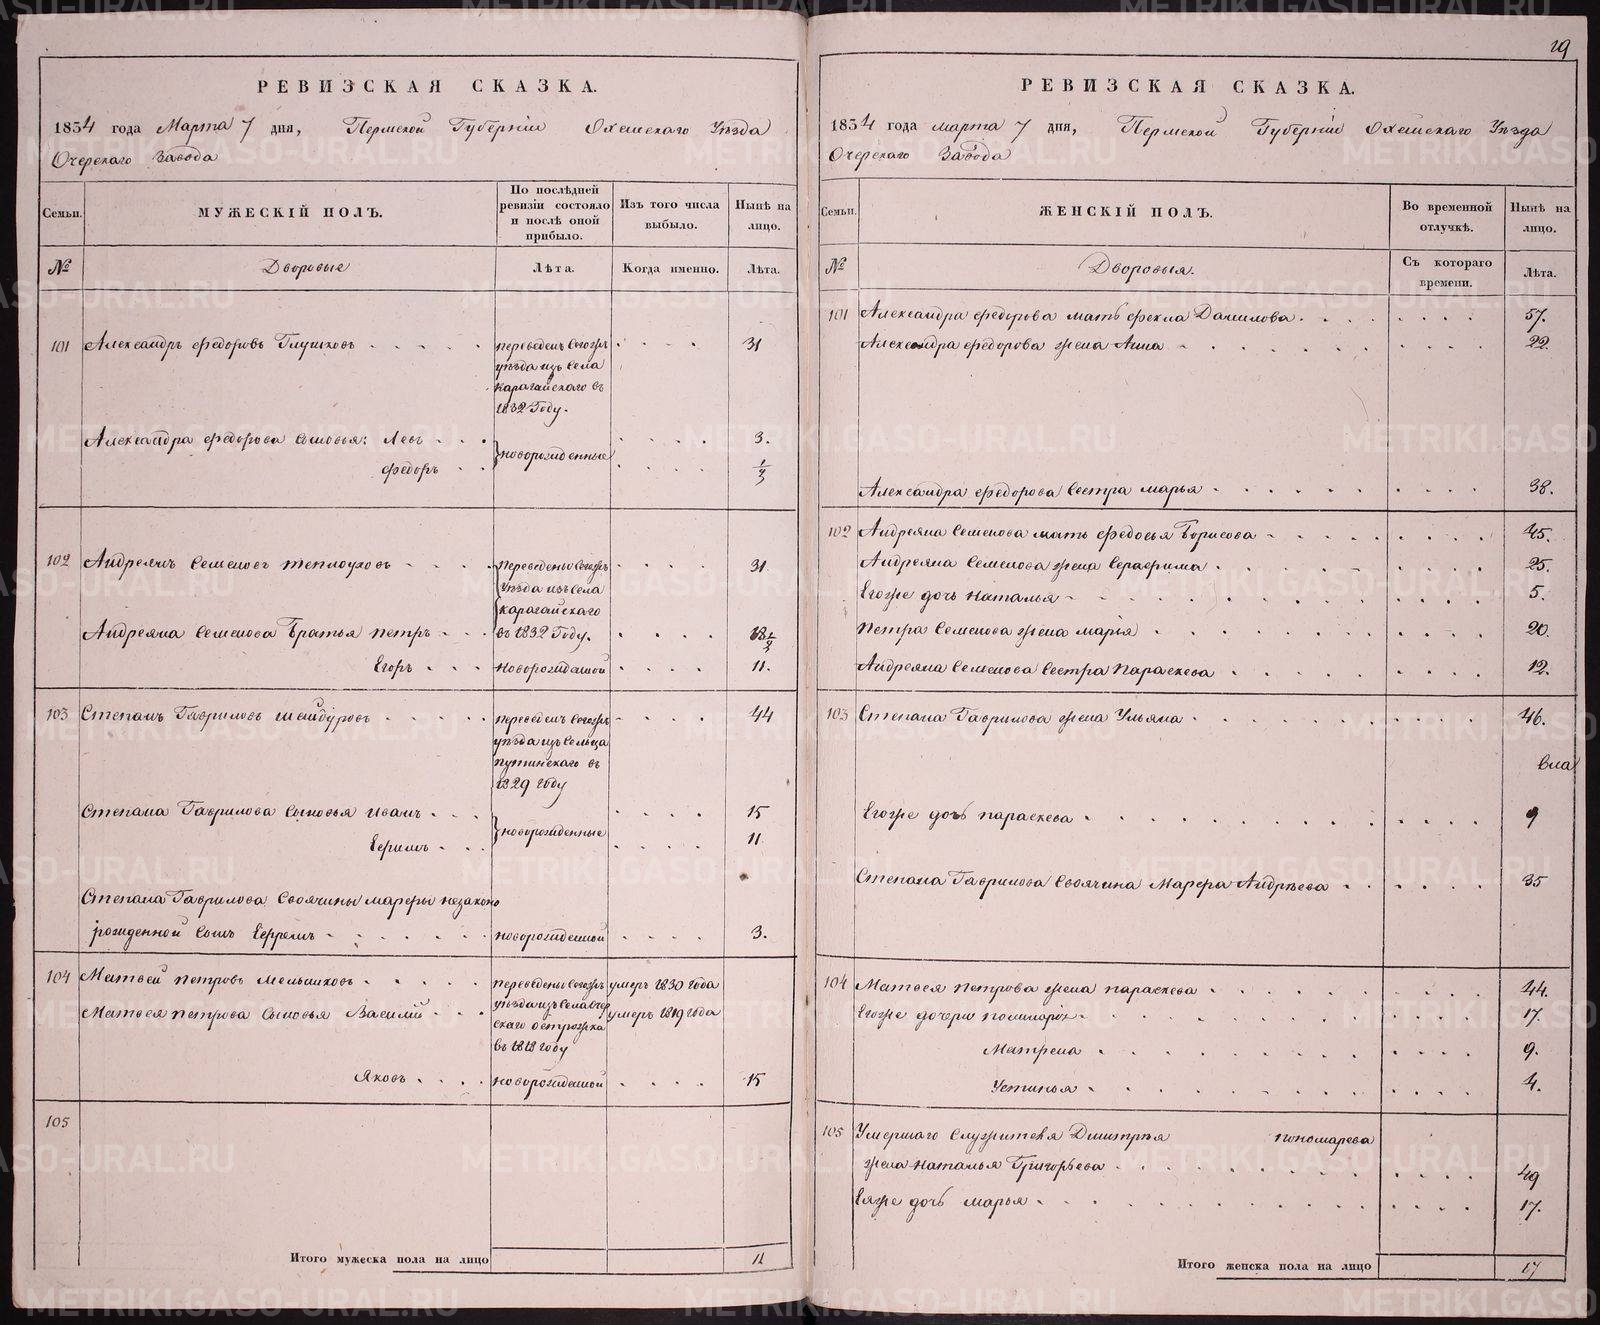 РЕВИЗСКАЯ СКАЗКА.
1834 года Марта 7 дня, Пермской Губернiи Оханскаго Уѣзда
Очерскаго Завода
Семьи.
МУЖЕСКIЙ ПОЛЪ.
По послѣдней
ревизiи состояло
и послѣ оной
прибыло.
Изъ того числа
выбыло.
Нынѣ на
лицо.
№
Дворовые
Лѣта.
Когда именно.
Лѣта.
101 Александръ Федоровъ Глушковъ
переведенъ согожъ
уѣзда изъ села
Карагайскаго въ
1832 Году.
31
Александра Федорова сыновья: Левъ
Федоръ
новорожденные
3.
1/3
102 Андреянъ Семеновъ Теплоуховъ
переведены сегожъ
Уѣзда изъ села
Карагайскаго
въ 1832 Году.
31
Андреяна Семенова Братья Петръ
Егоръ
новорожденной
11.
103 Степанъ Гавриловъ Шайдуровъ
переведенъ сегожъ
уѣзда изъ сельца
Путинскаго въ
1829 году
44
Степана Гаврилова сыновья Иванъ
15
новорожденные
11
Степана Гаврилова Своячины Марфы незаконо
рожденной сынъ Ефремъ
новорожденной
3.
104 Матвей Петровъ Мельниковъ
переведены сегожъ
умеръ 1830 года
Матвея Петрова сыновья Василий
уѣзда изъ села Очер
скаго острожка
въ 1818 году
умеръ 1819 года
Яковъ
новорожденной
15
105
Итого мужеска пола на лицо
11
19
РЕВИЗСКАЯ СКАЗКА.
1834 года марта 7 дня, Пермской Губернiи Оханскаго Уѣзда
Очерскаго Завода
Семьи.
ЖЕНСКIЙ ПОЛЪ.
Во временной
отлучкѣ.
Нынѣ на
лицо.
№
Дворовыя.
Съ котораго
времени.
Лѣта.
101 Александра Федорова мать Фекла Данилова. 57.
Александра Федорова жена Анна 22.
Александра Федорова Сестра Марья 38.
102 Андреяна Семенова мать Федосья Борисова 45.
Андреяна Семенова жена Серафима 25.
Егожѣ дочь Наталья 5.
Петра Семенова жена Марья 20.
Андреяна Семенова Сестра Параскева 12.
103 Степана Гаврилова жена Ульяна 46.
Егожѣ дочь Параскева 9
Степана Гаврилова Своячина Марфа Андрѣева 35
104 Матвея Петрова жена Параскева 44.
Егожѣ дочери 17.
Матрена 9.
Устинья 4.
105 Умершаго Служителя Дмитрѣя Пономарева
жена Наталья Григорьева 49
Еяжѣ дочь Марья 17.
Итого женска пола на лицо 17
METRIKI.GASO-URAL.RU